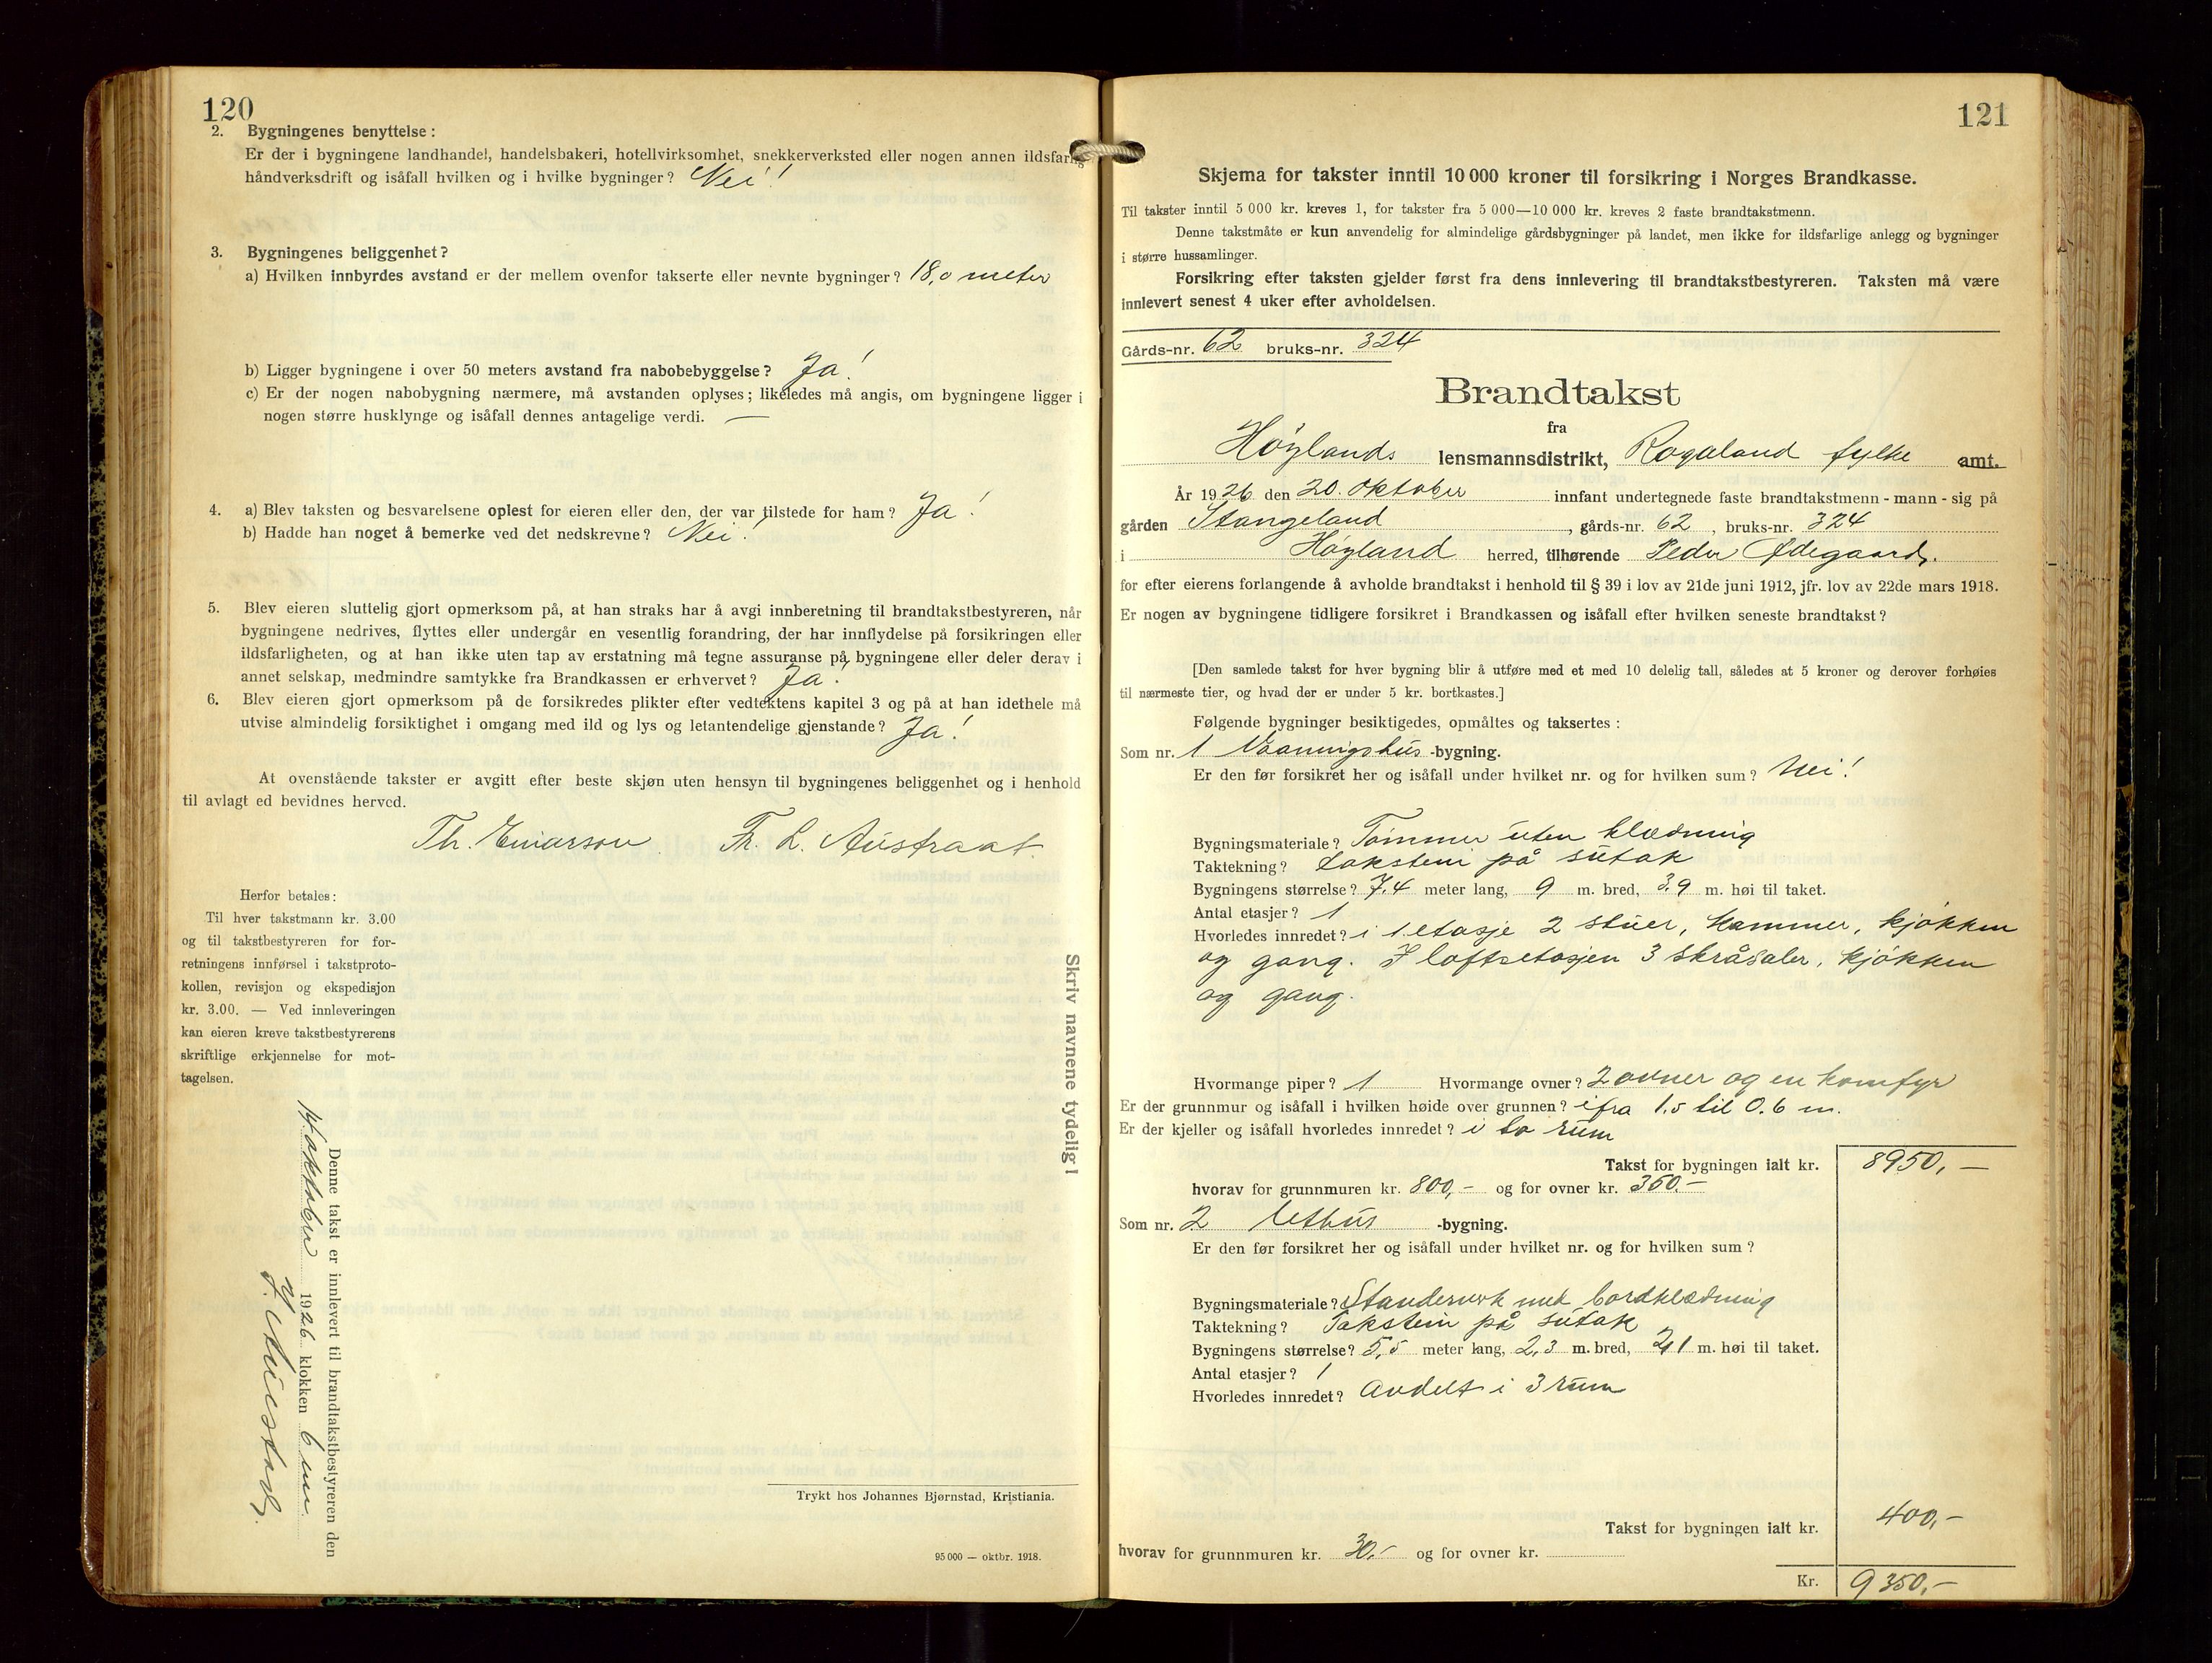 120
2. Bygningenes benyttelse:
Er der i bygningene landhandel, handelsbakeri, hotellvirksomhet, snekkerverksted eller nogen annen ildsfarlig
håndverksdrift og isåfall hvilken og i hvilke bygninger? Nei!
3. Bygningenes beliggenhet?
a) Hvilken innbyrdes avstand er der mellem ovenfor takserte eller nevnte bygninger? 18,0 meter
b) Ligger bygningene i over 50 meters avstand fra nabobebyggelse? Ja!
c) Er der nogen nabobygning nærmere, må avstanden oplyses; likeledes må angis, om bygningene ligger i
nogen større husklynge og isåfall dennes antagelige verdi. —
4. a) Blev taksten og besvarelsene oplest for eieren eller den, der var tilstede for ham? Ja!
b) Hadde han noget å bemerke ved det nedskrevne? Nei!
5. Blev eieren sluttelig gjort opmerksom på, at han straks har å avgi innberetning til brandtakstbestyreren, når
bygningene nedrives, flyttes eller undergår en vesentlig forandring, der har innflydelse på forsikringen eller
ildsfarligheten, og at han ikke uten tap av erstatning må tegne assuranse på bygningene eller deler derav i
annet selskap, medmindre samtykke fra Brandkassen er erhvervet? Ja!
6. Blev eieren gjort opmerksom på de forsikredes plikter efter vedtektens kapitel 3 og på at han idethele må
utvise almindelig forsiktighet i omgang med ild og lys og letantendelige gjenstande? Ja!
At ovenstående takster er avgitt efter beste skjøn uten hensyn til bygningenes beliggenhet og i henhold
til avlagt ed bevidnes herved.
Th. Einarson Fr. L. Austraat.
Herfor betales:
Til hver takstmann kr. 3.00
og til takstbestyreren for for-
retningens innførsel i takstproto-
kollen, revisjon og ekspedisjon
kr. 3.00. — Ved innleveringen
kan eieren kreve takstbestyrerens
skriftlige erkjennelse for mot-
tagelsen.
Skriv navnene tydelig!
Denne takst er innlevert til brandtakstbestyreren den
oktober 1926 klokken 6 em.
Trykt hos Johannes Bjørnstad, Kristiania.
95 000 — oktbr. 1918.
121
Skjema for takster inntil 10 000 kroner til forsikring i Norges Brandkasse.
Til takster inntil 5 000 kr. kreves 1, for takster fra 5 000—10 000 kr. kreves 2 faste brandtakstmenn.
Denne takstmåte er kun anvendelig for almindelige gårdsbygninger på landet, men ikke for ildsfarlige anlegg og bygninger
i større hussamlinger.
Forsikring efter taksten gjelder først fra dens innlevering til brandtakstbestyreren. Taksten må være
innlevert senest 4 uker efter avholdelsen.
Gårds-nr. 62 bruks-nr. 324
Brandtakst
fra
Høylands lensmannsdistrikt, Rogaland fylke amt.
År 1926 den 20. oktober innfant undertegnede faste brandtakstmenn - mann - sig på
gården Stangeland, gårds-nr. 62, bruks-nr. 324
i Høyland herred, tilhørende Peder Ødegaard,
for efter eierens forlangende å avholde brandtakst i henhold til § 39 i lov av 21de juni 1912, jfr. lov av 22de mars 1918.
Er nogen av bygningene tidligere forsikret i Brandkassen og isåfall efter hvilken seneste brandtakst?
[Den samlede takst for hver bygning blir å utføre med et med 10 delelig tall, således at 5 kroner og derover forhøies
til nærmeste tier, og hvad der er under 5 kr. bortkastes.]
Følgende bygninger besiktigedes, opmåltes og taksertes:
Som nr. 1 Vaaningshus-bygning.
Er den før forsikret her og isåfall under hvilket nr. og for hvilken sum? Nei!
Bygningsmateriale? Tømmer uten klædning
Taktekning? takstein på sutak
Bygningens størrelse? 7,4 meter lang, 9 m. bred, 3,9 m. høi til taket.
Antal etasjer? 1
Hvorledes innredet? i 1. etasje 2 stuer, kammer, kjøkken
og gang. I loftsetasjen 3 skråsaler, kjøkken
og gang.
Hvormange piper? 1 Hvormange ovner? 2 ovner og en komfyr
Er der grunnmur og isåfall i hvilken høide over grunnen? ifra 1.5 til 0.6 m.
Er der kjeller og isåfall hvorledes innredet? i to rum
Takst for bygningen ialt kr. 8950,-
hvorav for grunnmuren kr. 800,- og for ovner kr. 350.-
Som nr. 2 Uthus -bygning.
Er den før forsikret her og isåfall under hvilket nr. og for hvilken sum?
Bygningsmateriale? Standerverk med bordklædning
Taktekning? Takstein på sutak
Bygningens størrelse? 5,5 meter lang, 2,3 m. bred, 2,1 m. høi til taket.
Antal etasjer? 1
Hvorledes innredet? avdelt i 3 rum
Takst for bygningen ialt kr. 400,-
hvorav for grunnmuren kr. 30,- og for ovner kr.
Kr. 9350,-